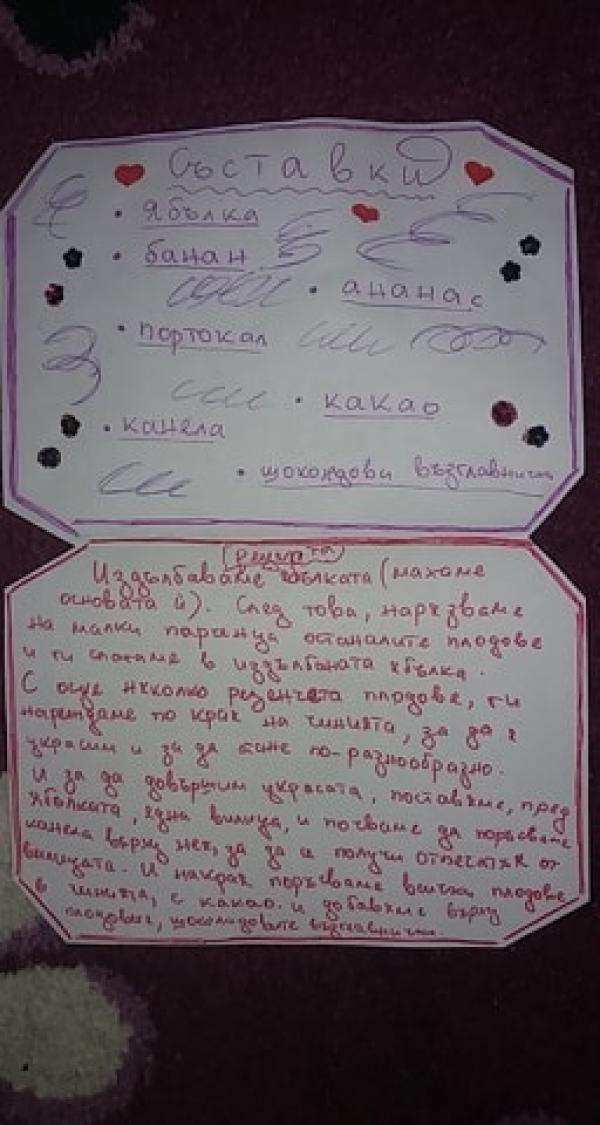 Съставки
• ябълка
• банан
• ананас
• портокал
• какао
• канела
• шоколдови възглавнички
Рецепта
Издълбаваме ябълката (махаме
основата ѝ). След това, нарязваме
на малки парченца останалите плодове
и ги слагаме в издълбаната ябълка.
С още няколко резенчета плодове, ги
нареждаме по края на чинията, за да я
украсим и за да стане по-разнообразно.
И за да довършим украсата, поставяме, пред
ябълката, една вилица, и почваме да поръсваме
канела върху нея, за да се получи отпечатък от
вилицата. И накрая поръсваме всички плодове
в чинията, с какао. и добавяме върху
плодовете, шоколадовите възглавнички.